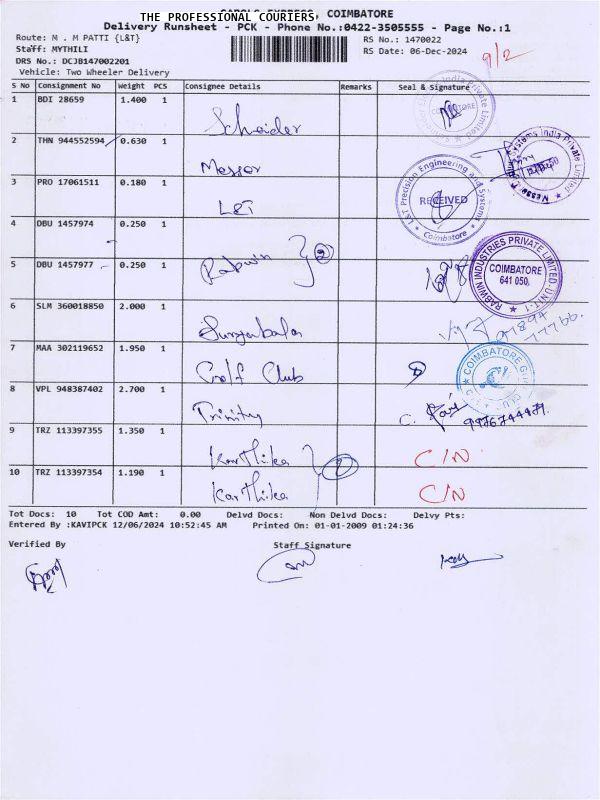 THE PROFESSIONAL COURIERS, COIMBATORE
Delivery Runsheet - PCK - Phone No.:0422-3505555 - Page No.:1
Route: M . M PATTI {L&T}
RS No.: 1470022
9/2
Staff: MYTHILI
RS Date: 06-Dec-2024
DRS No.: DCJB147002201
Vehicle: Two Wheeler Delivery
S No Consignment No Weight PCS Consignee Details Remarks Seal & Signature
1 BDI 28659 1.400 1
2 THN 944552594 0.630 1 Messer
3 PRO 17061511 0.180 1 L&T
L&T Precision Engineering and Systems
RECEIVED
Coimbatore
4 DBU 1457974 0.250 1
5 DBU 1457977 0.250 1 Rabwin 2
RABWIN INDUSTRIES PRIVATE LIMITED-UNIT-1
COIMBATORE
641 050.
6 SLM 360018850 2.000 1
7 MAA 302119652 1.950 1 Golf Club
8 VPL 948387402 2.700 1 Trinity
9 TRZ 113397355 1.350 1 Karthika C/N
10 TRZ 113397354 1.190 1 Karthika C/N
Tot Docs: 10 Tot COD Amt: 0.00 Delvd Docs: Non Delvd Docs: Delvy Pts:
Entered By :KAVIPCK 12/06/2024 10:52:45 AM Printed On: 01-01-2009 01:24:36
Verified By Staff Signature